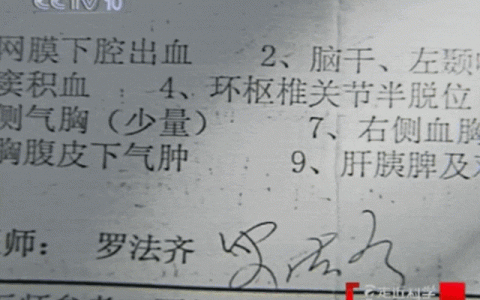 CCTV10
网膜下腔出血 2、脑干、左颞
窦积血 4、环枢椎关节半脱位
侧气胸（少量） 7、右侧血胸
胸腹皮下气肿 9、肝胰脾及
师： 罗法齐 罗法齐
走近科学